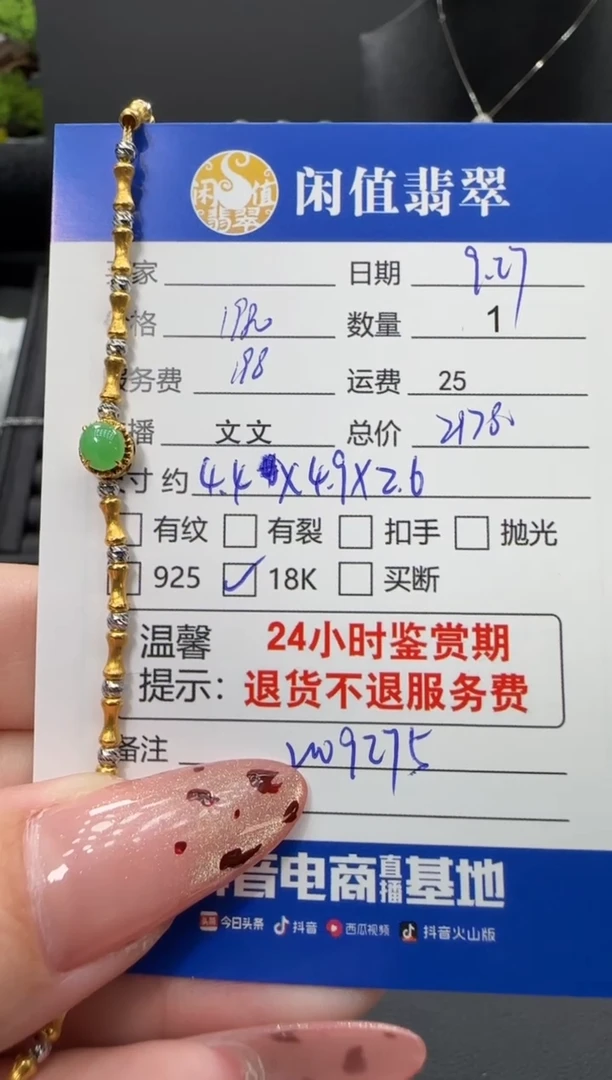 闲值翡翠 闲值翡翠
家 日期 9.27
格 1980 数量 1
务费 198 运费 25
播 文文 总价 2178
寸 约 4.4 X 4.9 X 2.6
有纹 有裂 扣手 抛光
925 ✓ 18K 买断
温馨 24小时鉴赏期
提示: 退货不退服务费
备注 9275
音电商直播基地
头条 今日头条 抖音 西瓜视频 抖音火山版